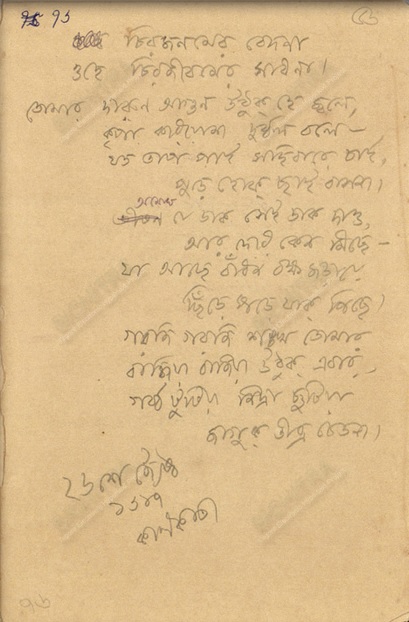 ৭১
চিরজনমের বেদনা
ওহে চিরজীবনের সাধনা।
তোমার আগুন উঠুক হে জ্বলে,
কৃপা করিয়োনা দুর্ব্বল বলে—
যত তাপ পাই সহিবারে চাই,
পুড়ে হোক্ ছাই বাসনা।
অমোঘ
যে ডাক সেই ডাক দাও,
আর দেরি কেন মিছে—
যা আছে বাঁধন বক্ষ জড়ায়ে
ছিঁড়ে পড়ে যাক্ পিছে।
গরজি গরজি শঙ্খ তোমার
বাজিয়া বাজিয়া উঠুক এবার,
গর্ব্ব টুটিয়া নিদ্রা ছুটিয়া
জাগুক তীব্র চেতনা।
২৬শে জ্যৈষ্ঠ
কলিকাতা